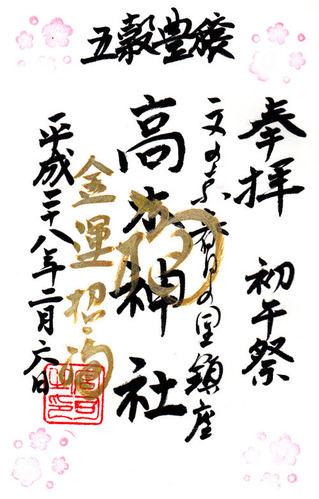 五穀豊穣
奉拝 初午祭
文の京 の里鎮座
高木神社
金運招福
平成二十八年二月六日